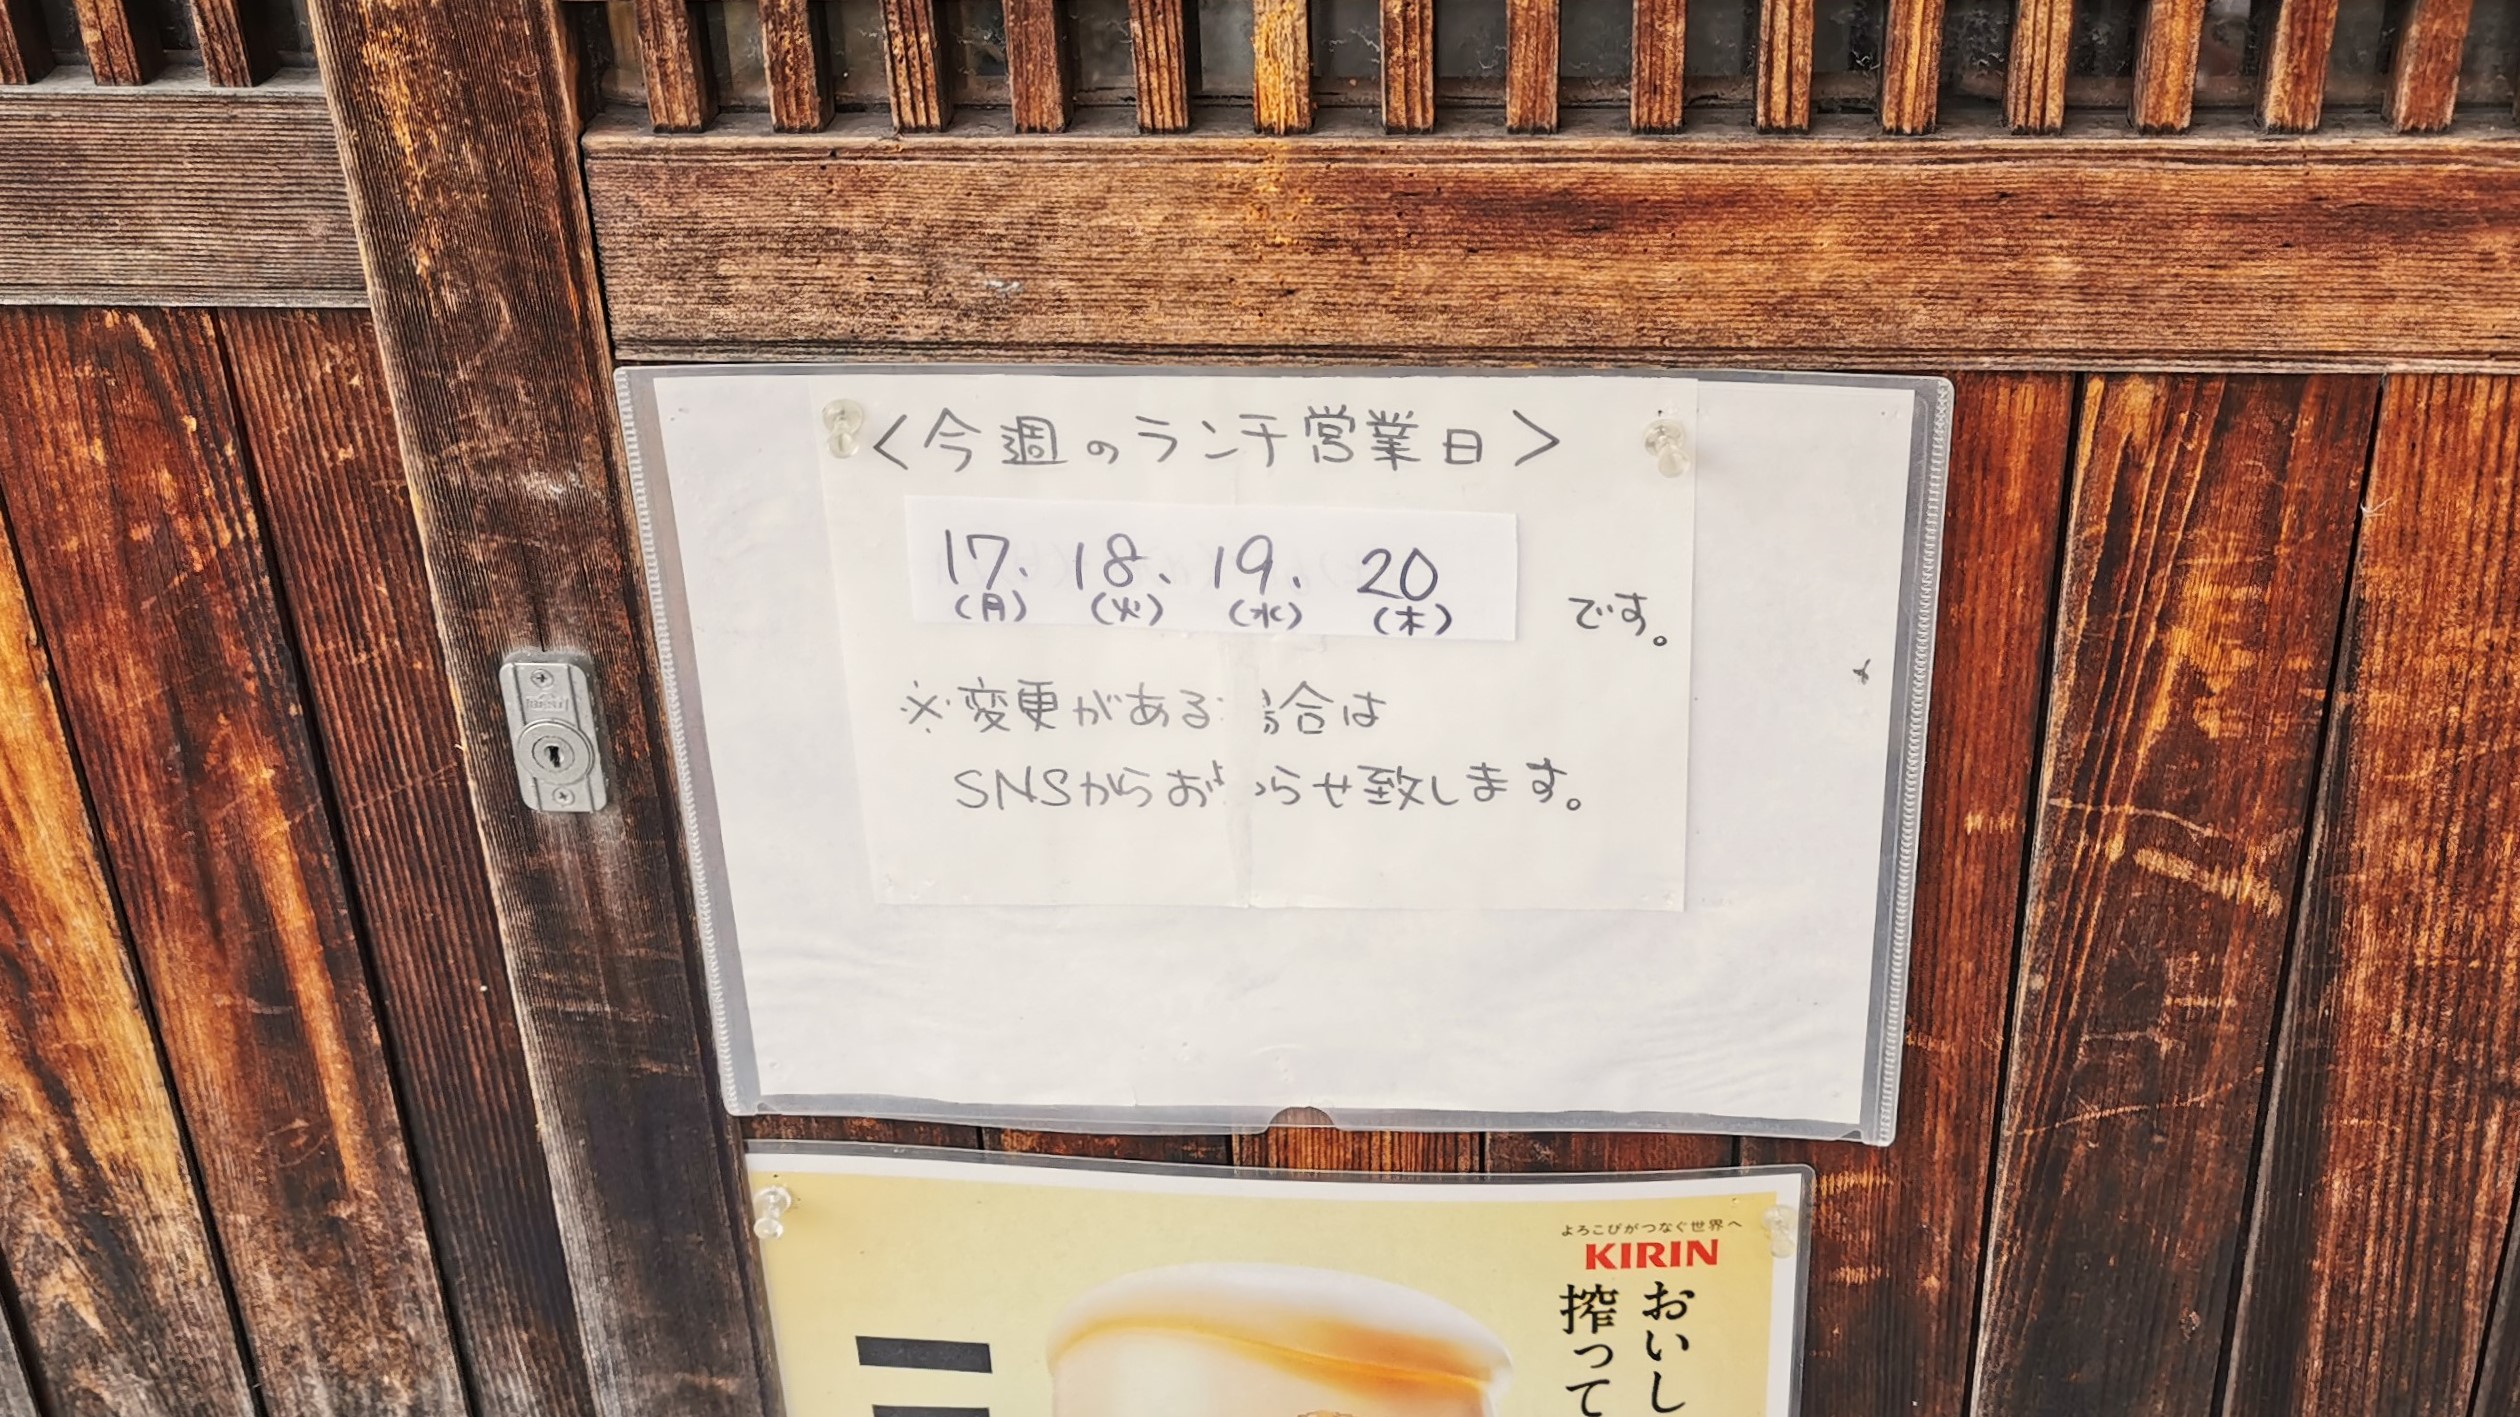 <今週のランチ営業日>
17、18、19、20
(月) (火) (水) (木)
です。
※変更がある場合は
SNSからお知らせ致します。
よろこびがつなぐ世界へ
KIRIN
おいし
搾って